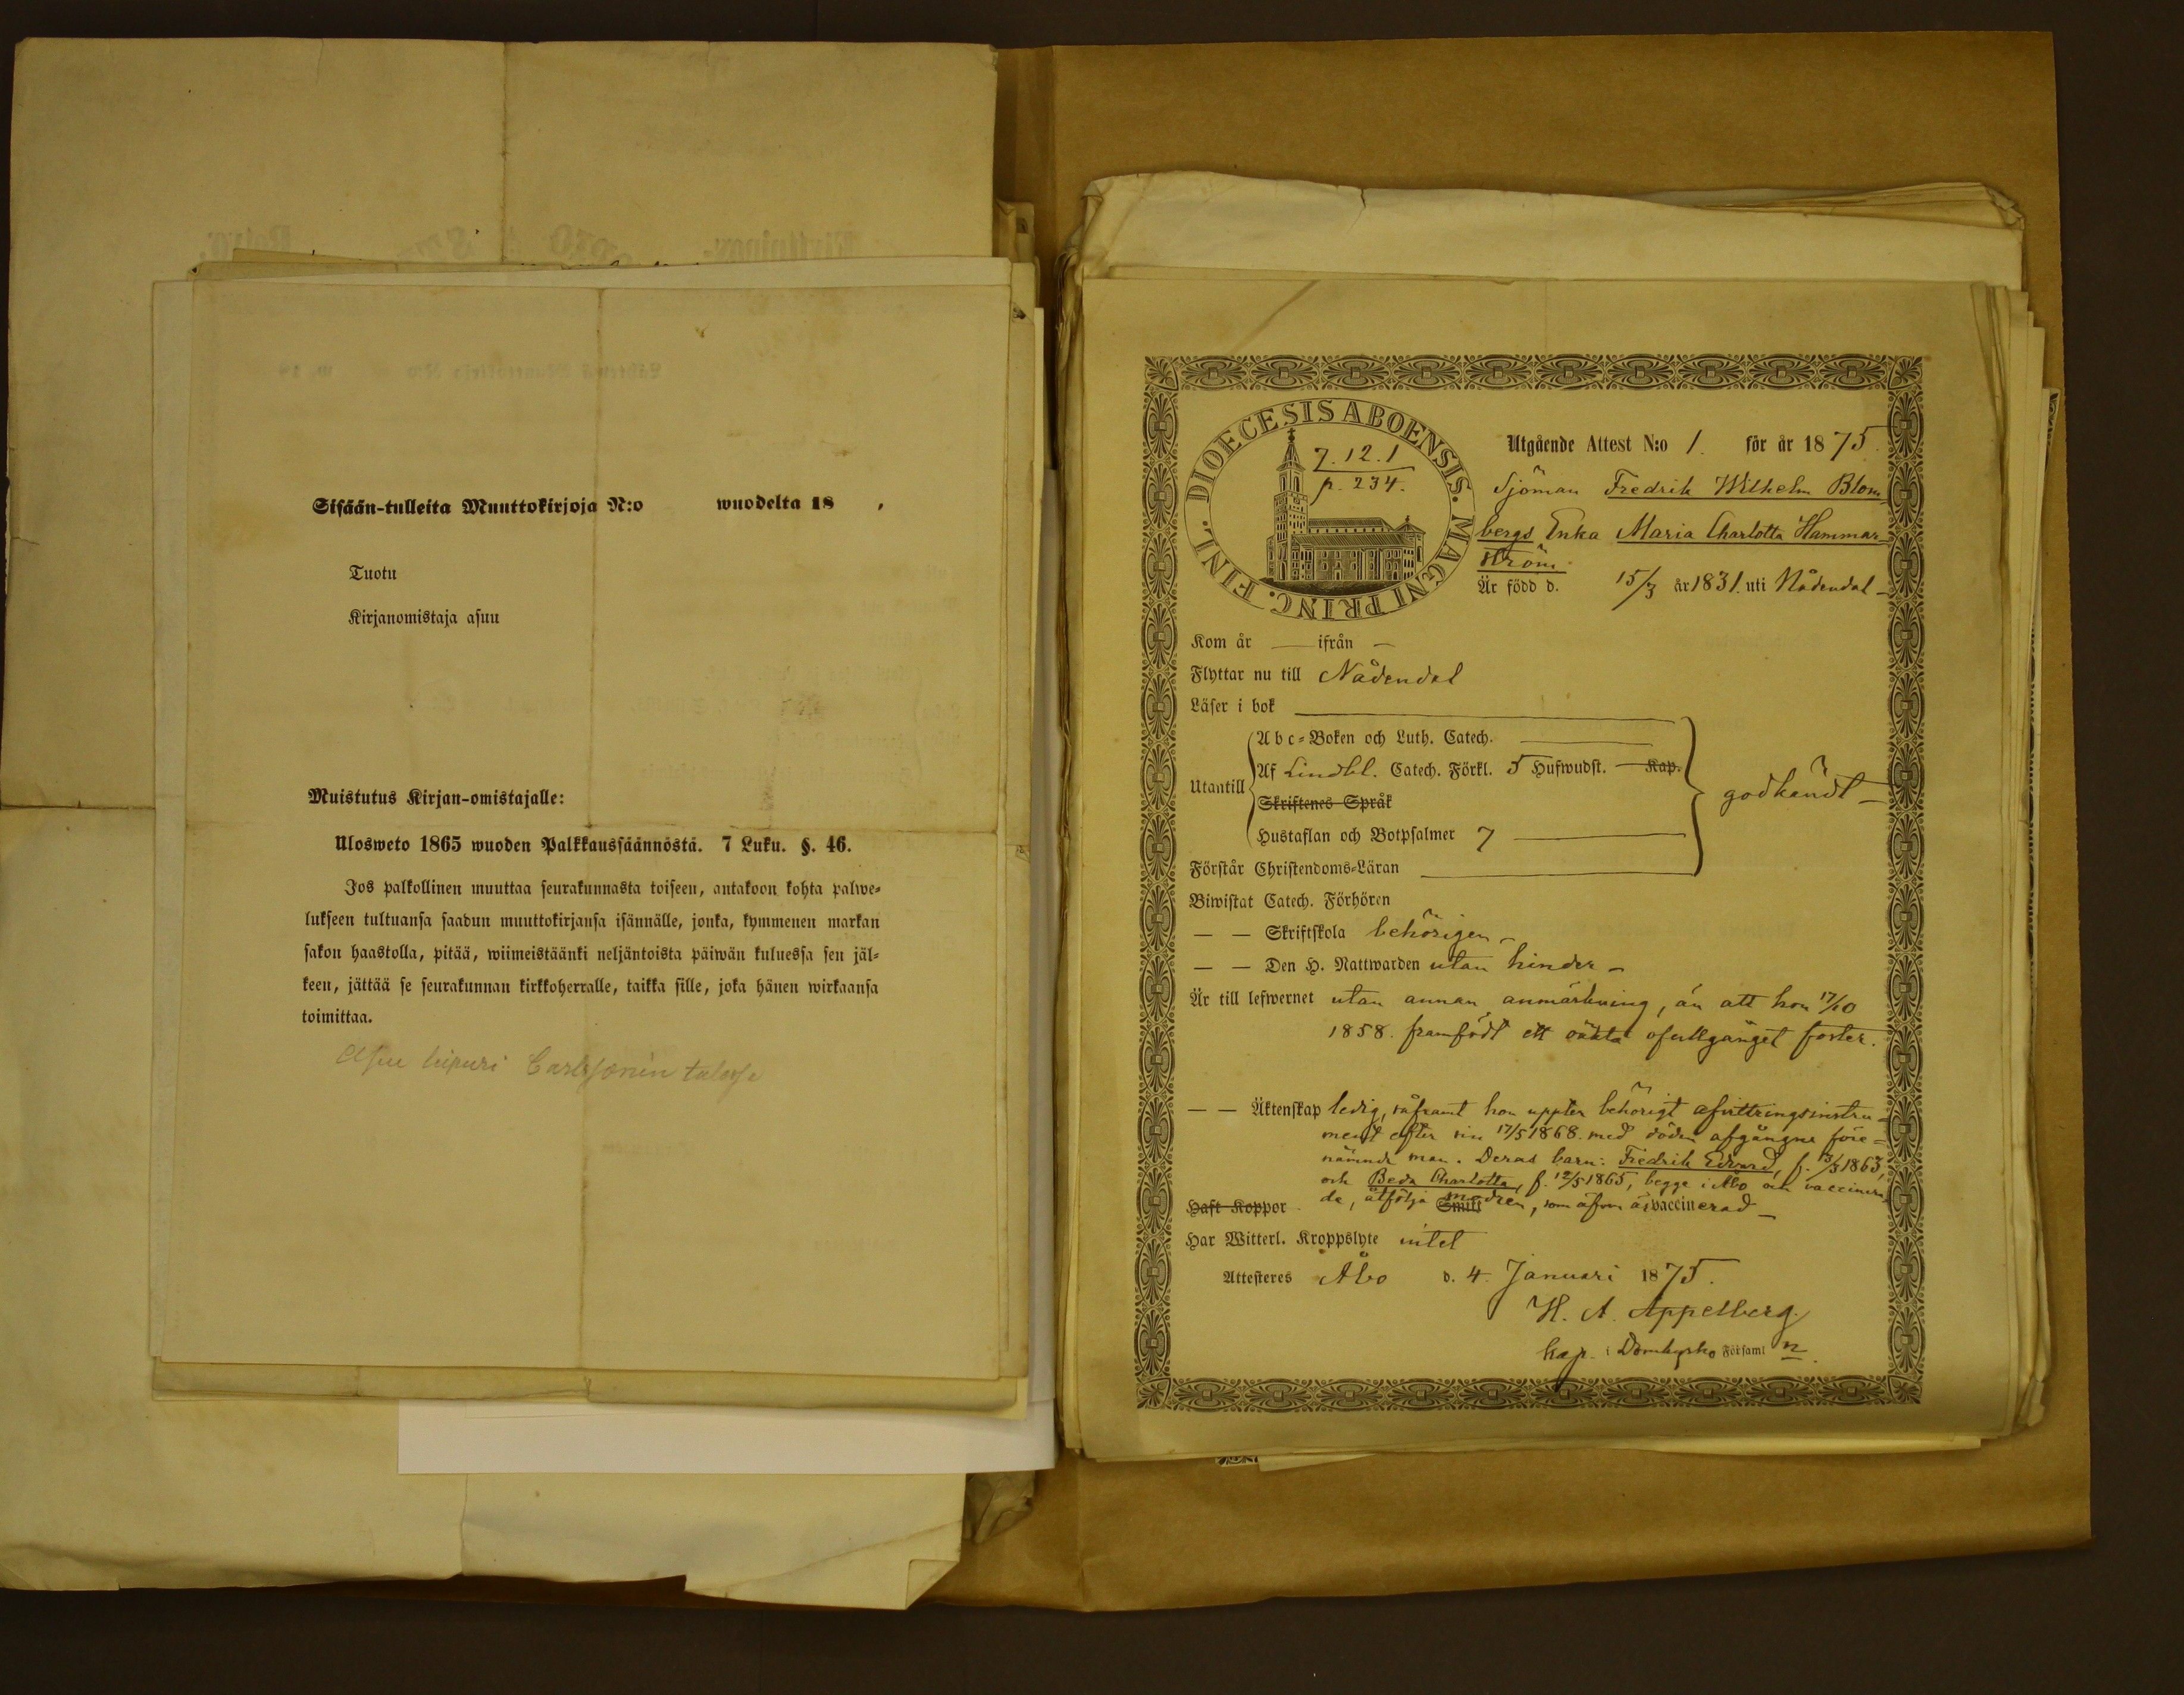 Sisään-tulleita Muuttokirjoja N:o wuodelta 18 .
Tuotu
Kirjanomistaja asuu
Muistutus Kirjan-omistajalle:
Ulosweto 1865 wuoden Palkkaussäännöstä. 7 Luku. §. 46.
Jos palkollinen muuttaa seurakunnasta toiseen, antakoon kohta palwe-
lukseen tultuansa saadun muuttokirjansa isännälle, jonka, kymmenen markan
sakon haastolla, pitää, wiimeistäänki neljäntoista päiwän kuluessa sen jäl-
keen, jättää se seurakunnan kirkkoherralle, taikka sille, joka hänen wirkaansa
toimittaa.
Carlssonin
DIOECESIS ABOENSIS. MAGNI PRINC. FINL.
7.12.1
p. 234.
Utgående Attest N:o 1. för år 1875.
Sjöman Fredrik Wilhelm Blom-
bergs Enka Maria Charlotta Hammar-
ström
Är född d. 15/3 år 1831. uti Nådendal
Kom år — ifrån —
Flyttar nu till Nådendal
Läser i bok
Utantill
Abc-Boken och Luth. Catech.
Af Lindbl. Catech. Förkl. 5 Hufwudst. — Kap.
Skriftenes Språk
Hustaflan och Botpsalmer 7
godkändt
Förstår Christendoms-Läran
Biwistat Catech. Förhören
— — Skriftskola behörigen
— — Den H. Nattwarden utan hinder
Är till lefwernet utan annan anmärkning, än att hon 17/10
1858. framfödt ett oäkta ofullgånget foster.
— — Äktenskap ledig, såframt hon uppter behörigt afvittringsinstru-
ment efter sin 17/5 1868. med döden afgångne före-
nämnde man. Deras barn: Fredrik Edvard, f. 13/3 1863,
och Beda Charlotta, f. 12/5 1865, begge i Åbo och vaccinera-
de, åtfölja modren, som äfven är vaccinerad
Haft Koppor Smitt
Har Witterl. Kroppslyte intet
Attesteres Åbo d. 4. Januari 1875.
H. A. Appelberg
kap. i Domkyrko Församl n